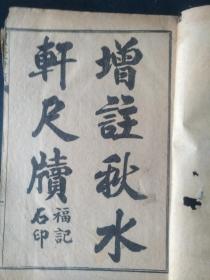 增註秋水
軒尺牘
福記
石印